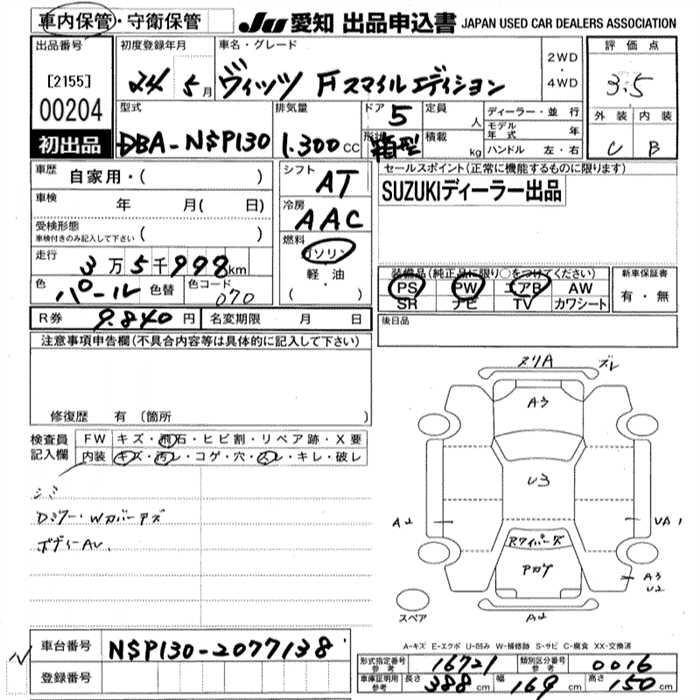 車内保管・守衛保管
JU 愛知 出品申込書 JAPAN USED CAR DEALERS ASSOCIATION
出品番号
[2155]
00204
初出品
初度登録年月
24 5月
車名・グレード
ヴィッツ Fスマイルエディション
2WD
・
4WD
評価点
3.5
外装 内装
C B
型式
DBA-NSP130
排気量
1.300cc
ドア 5
形状 箱型
定員 人
積載 kg
ディーラー・並行
モデル年式 年
ハンドル 左・右
車歴 自家用・( )
車検 年 月( 日)
受検形態
車検付きのみ記入して下さい ( )
走行 3万5千998km
色 パール 色替 色コード 070
シフト AT
冷房 AAC
燃料
ガソリン
軽油
( ・ )
セールスポイント(正常に機能するものに限ります)
SUZUKIディーラー出品
装備品(純正品に限り○をつけてください)
PS PW エアB AW
SR ナビ TV カワシート
新車保証書
有・無
R券 9.840円 名変期限 月 日
後日品
注意事項申告欄(不具合内容等は具体的に記入して下さい)
修復歴 有(箇所
検査員記入欄
FW キズ・飛石・ヒビ割・リペア跡・X要
内装 キズ・汚レ・コゲ・穴・スレ・キレ・破レ
シミ
Dミラー・Wカバーキズ
ボディーAU.
ヌリA ズレ
A3
U3
A2
UA1
Rワイパーズ
Pガケ
A3
U2
A2
スペア
A-キズ E-エクボ U-凹み W-補修跡 S-サビ C-腐食 XX-交換済
車台番号 NSP130-2077138
登録番号
形式指定番号 参考 16721
類別区分番号 参考 0016
車庫証明用 参考 長さ 388cm 幅 169cm 高さ 150cm